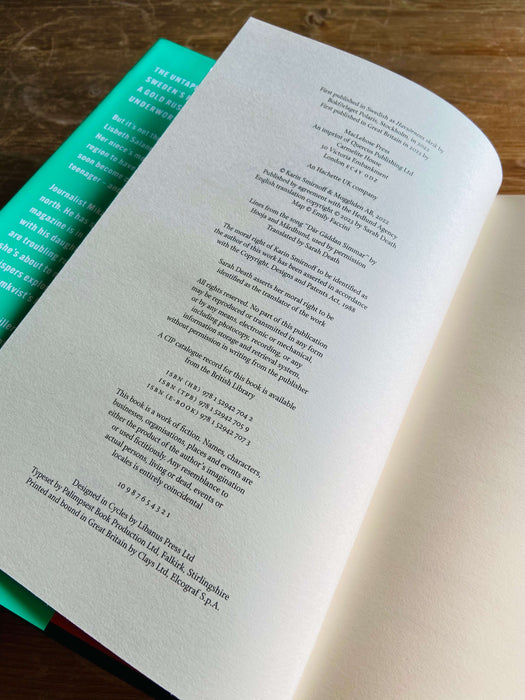 THE UNTAP
SWEDEN'S
A GOLD RUS
UNDERWOR
But it's not th
Lisbeth Salan
Her niece's m
region to hav
soon become
teenager – and
Journalist Mik
north. He has
magazine is in
with his daugh
are troubling r
she's about to
spers explo
mkvist's
First published in Swedish as Havsörnens skrik by
Bokförlaget Polaris, Stockholm, in 2022
First published in Great Britain in 2023 by
MacLehose Press
An imprint of Quercus Publishing Ltd
Carmelite House
50 Victoria Embankment
London EC4Y 0DZ
An Hachette UK company
© Karin Smirnoff & Moggliden AB, 2022
Published by agreement with the Hedlund Agency
English translation copyright © 2023 by Sarah Death
Map © Emily Faccini
Lines from the song "Där Gäddan Simmar" by
Hooja and Mårdhund, used by permission
Translated by Sarah Death
The moral right of Karin Smirnoff to be identified as
the author of this work has been asserted in accordance
with the Copyright, Designs and Patents Act, 1988
Sarah Death asserts her moral right to be
identified as the translator of the work
All rights reserved. No part of this publication
may be reproduced or transmitted in any form
or by any means, electronic or mechanical,
including photocopy, recording, or any
information storage and retrieval system,
without permission in writing from the publisher
A CIP catalogue record for this book is available
from the British Library
ISBN (HB) 978 1 52942 704 2
ISBN (TPB) 978 1 52942 705 9
ISBN (E-BOOK) 978 1 52942 707 3
This book is a work of fiction. Names, characters,
businesses, organisations, places and events are
either the product of the author's imagination
or used fictitiously. Any resemblance to
actual persons, living or dead, events or
locales is entirely coincidental
10 9 8 7 6 5 4 3 2 1
Designed in Cycles by Libanus Press Ltd
Typeset by Palimpsest Book Production Ltd, Falkirk, Stirlingshire
Printed and bound in Great Britain by Clays Ltd, Elcograf S.p.A.